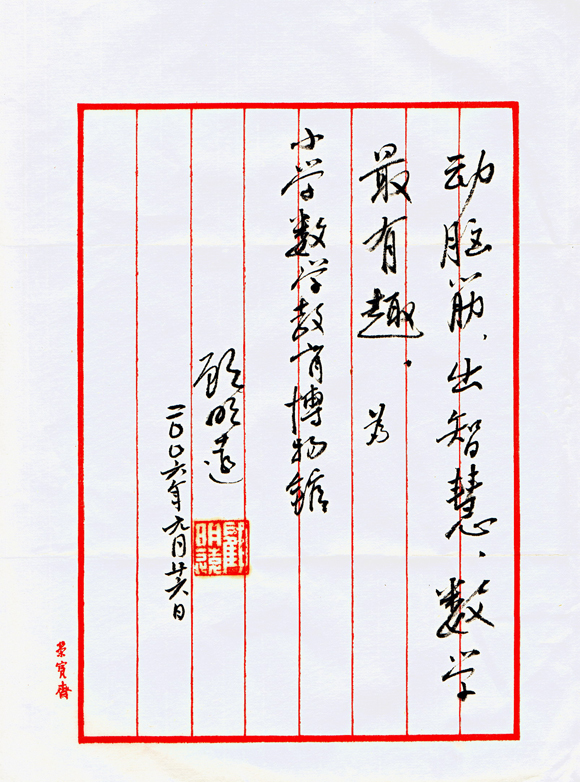 动脑筋，出智慧、数学
最有趣。
为
小学数学教育博物馆
顾明远
二〇〇六年九月廿六日
顾明远
荣宝斋